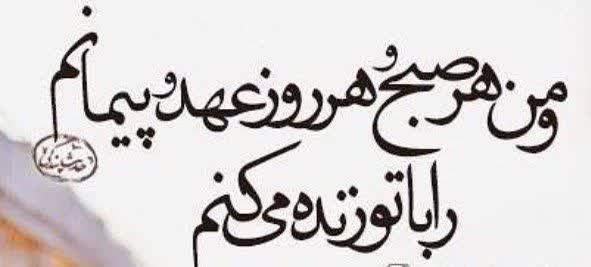 و من هر صبح و هر روز عهد و پیمانم
را با تو زنده می کنم